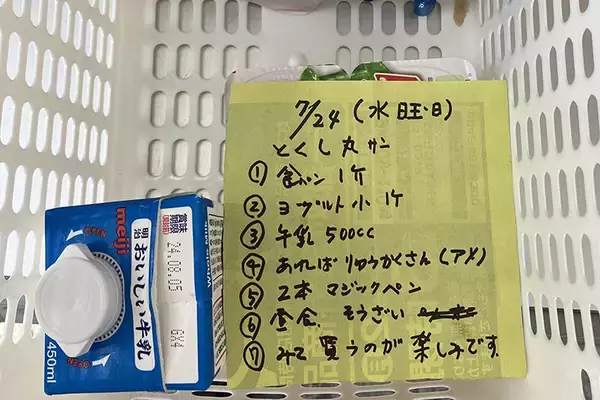 7/24(水曜日)
とくし丸サン
① 食パン 1ケ
② ヨーグルト小 1ケ
③ 牛乳 500cc
④ あれば りゅうかくさん(アメ)
⑤ 2本 マジックペン
⑥ 昼食 そうざい
⑦ みて買うのが楽しみです。
OPEN
meiji
明治 おいしい牛乳
賞味期限
24.08.05 GX4
OPEN
450ml